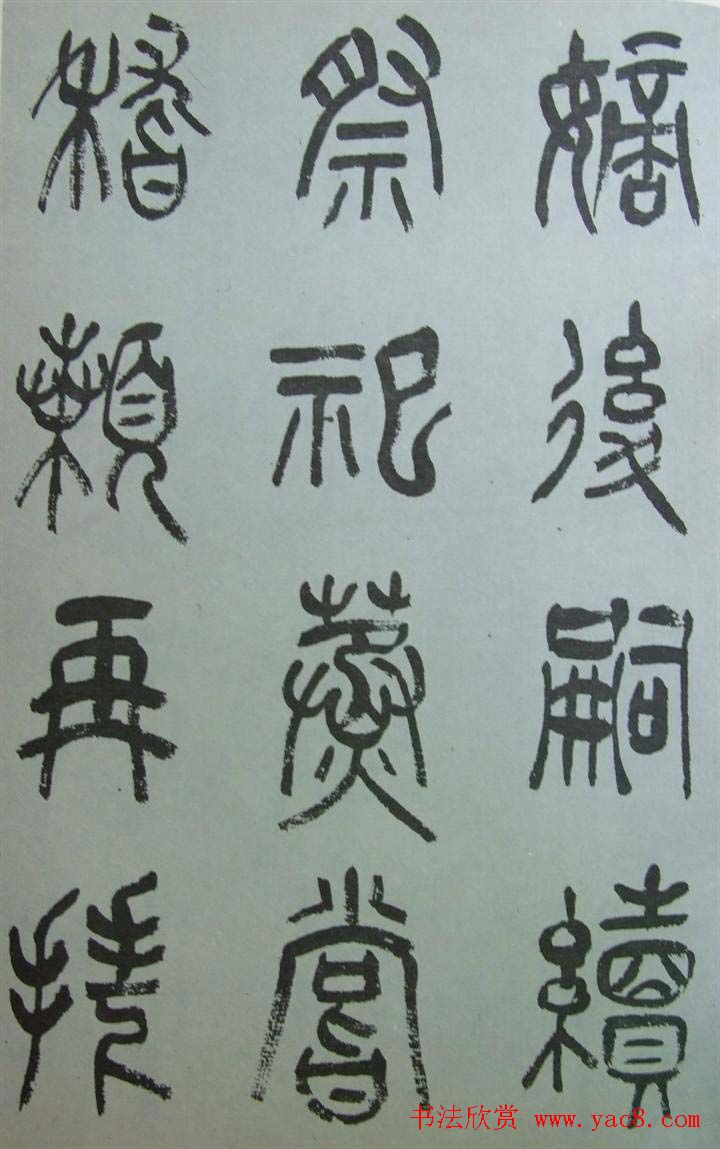 嫡後嗣續
祭祀蒸嘗
稽顙再拜
书法欣赏 www.yac8.com